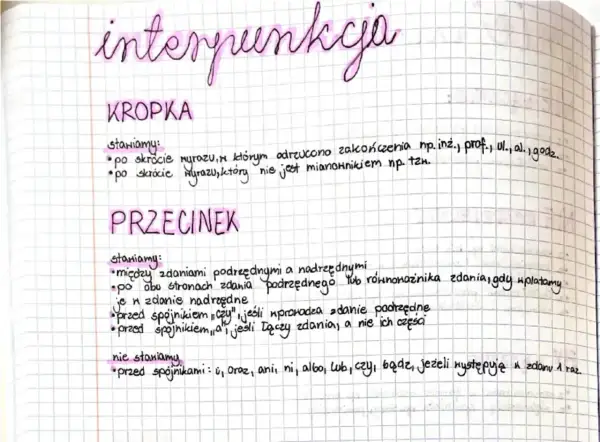 interpunkcja
KROPKA
stawiamy:
•po skrócie wyrazu, w którym odrzucono zakończenia np. inż., prof., ul., al., godz.
•po skrócie wyrazu, który nie jest mianownikiem np. tzn.
PRZECINEK
stawiamy:
•między zdaniami podrzędnymi a nadrzędnymi
•po obu stronach zdania podrzędnego lub równoważnika zdania, gdy wplatamy
je w zdanie nadrzędne
•przed spójnikiem „czy", jeśli wprowadza zdanie podrzędne
•przed spójnikiem „a", jeśli łączy zdania, a nie ich części
nie stawiamy
•przed spójnikami: i, oraz, ani, ni, albo, lub, czy, bądź, jeżeli występują w zdaniu 1 raz.